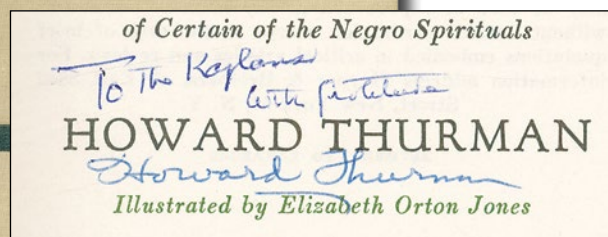 of Certain of the Negro Spirituals
To The Kaplans
with gratitude
HOWARD THURMAN
Howard Thurman
Illustrated by Elizabeth Orton Jones